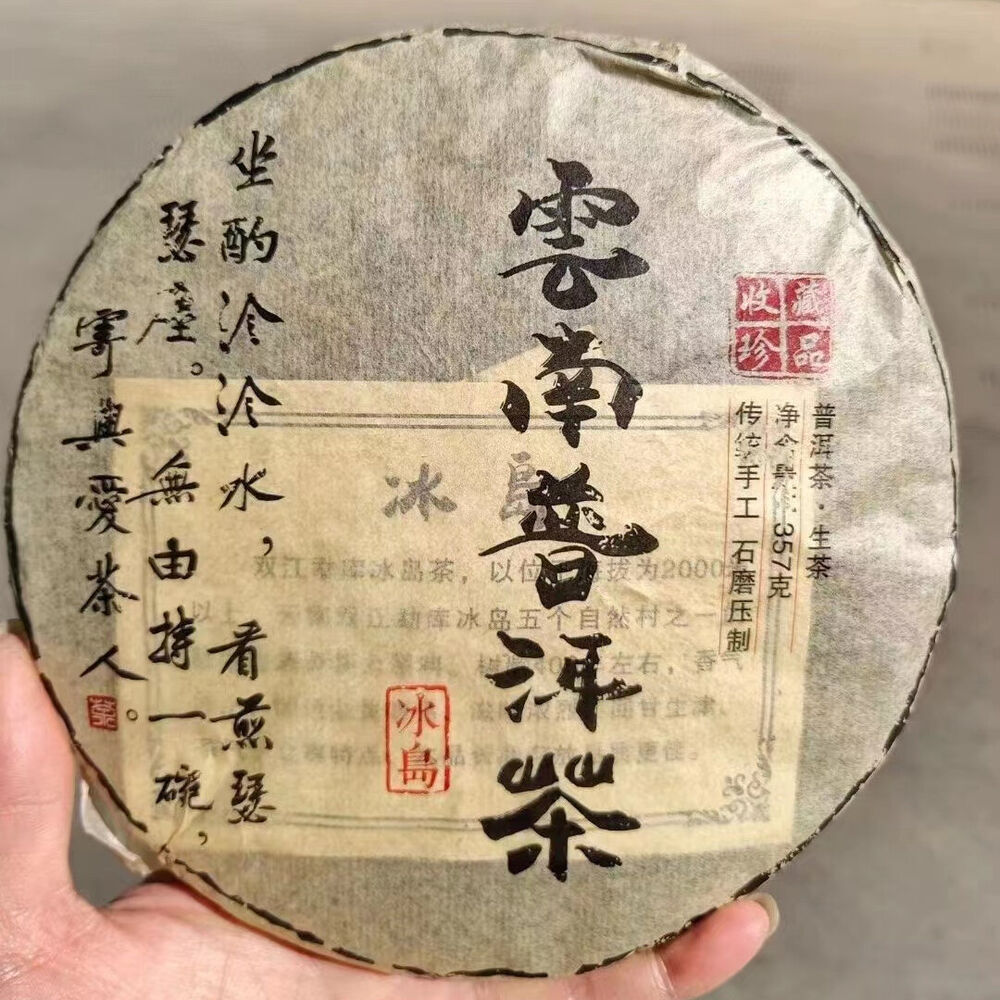 收藏
珍品
普洱茶·生茶
净含量:357克
传统手工 石磨压制
雲南普洱茶
冰島
坐酌泠泠水，看煎瑟
瑟塵。無由持一碗，
寄與愛茶人。
冰島
双江勐库冰岛茶，以位 海拔为2000
以上 双江勐库冰岛五个自然村之一
左右，香气
回甘生津
特点